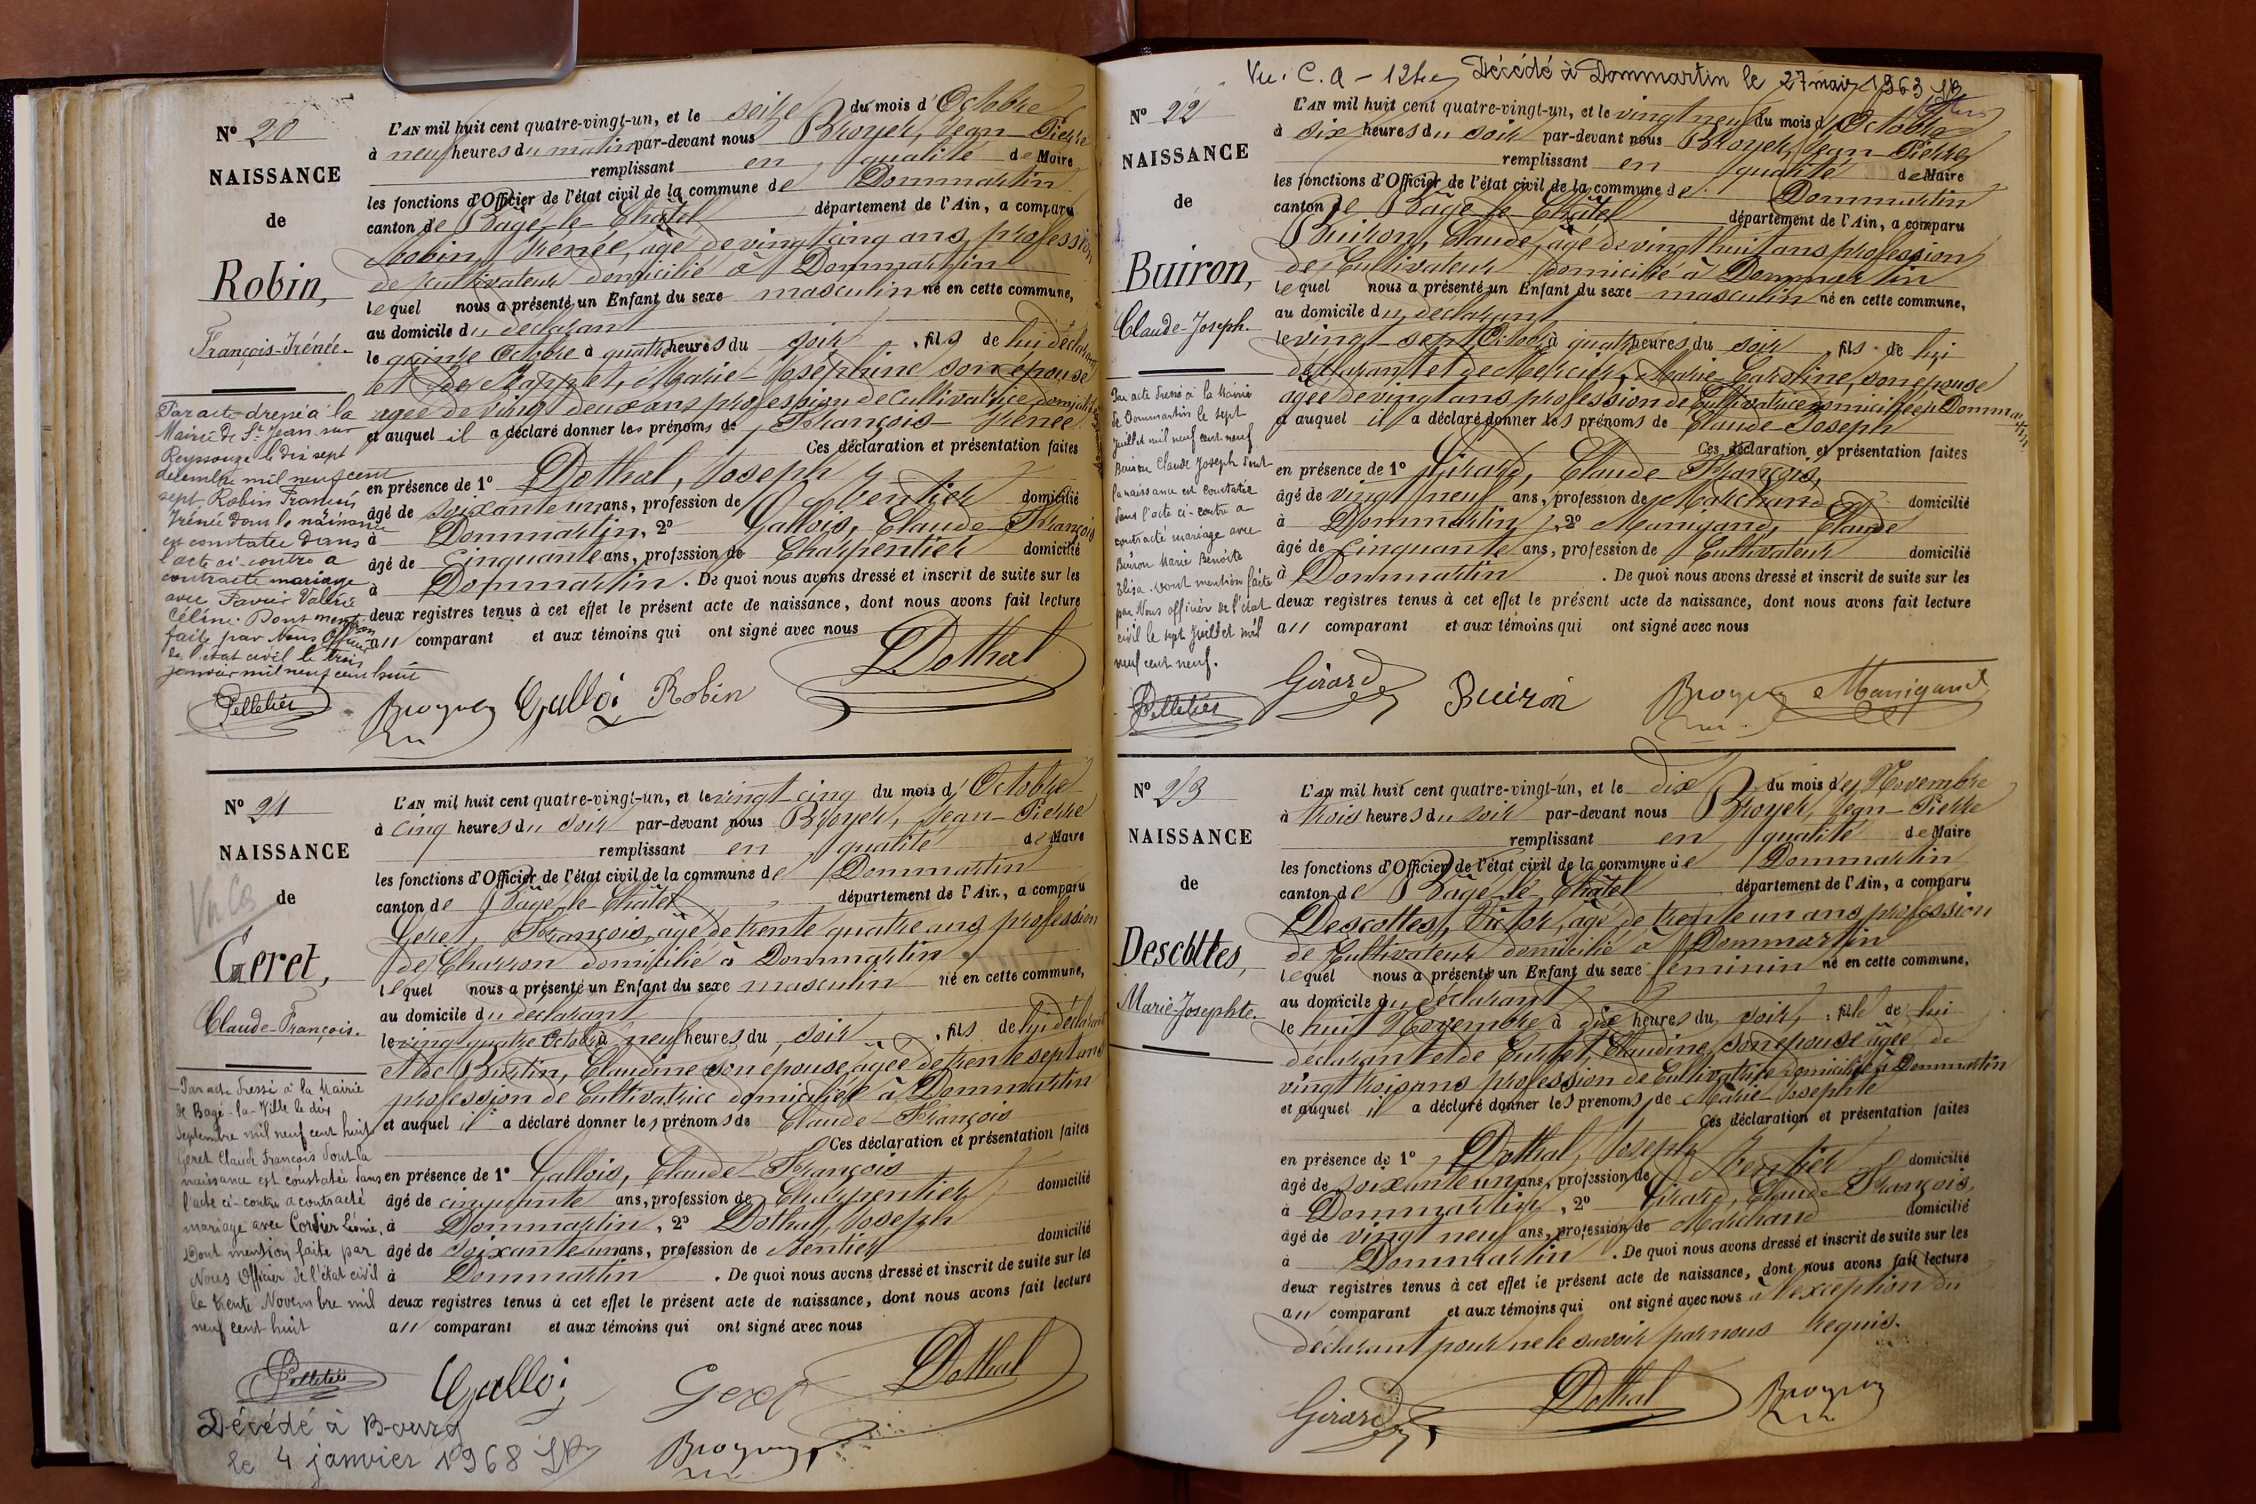 Nº 20
NAISSANCE
de
Robin,
François-Irénée.
Par acte dressé à la
Mairie de St Jean sur
Reyssouze le dix sept
décembre mil neuf cent
sept Robin François
Irénée dont la naissance
est constatée dans
l'acte ci-contre a
contracté mariage
avec Favier Valérie
Céline. Dont mention
faite par Nous Officier
de l'état civil le trois
janvier mil neuf cent huit
Pelletier
L'AN mil huit cent quatre-vingt-un, et le seize du mois d'Octobre
à neuf heures du matin par-devant nous Broyer, Jean-Pierre
remplissant en qualité de Maire
les fonctions d'Officier de l'état civil de la commune de Dommartin
canton de Bâgé-le-Châtel département de l'Ain, a comparu
Robin, Irénée, âgé de vingt cinq ans, profession
de cultivateur domicilié à Dommartin
lequel nous a présenté un Enfant du sexe masculin né en cette commune,
au domicile du déclarant
le quinze Octobre à quatre heures du soir, fils de lui déclarant
et de Marie-Joséphine son épouse
agée de vingt deux ans profession de Cultivatrice domiciliée
et auquel il a déclaré donner les prénoms de François-Irénée.
Ces déclaration et présentation faites
en présence de 1º Dothal, Joseph
âgé de soixante un ans, profession de Rentier domicilié
à Dommartin, 2º Gallois, Claude-François
âgé de Cinquante ans, profession de Charpentier domicilié
à Dommartin. De quoi nous avons dressé et inscrit de suite sur les
deux registres tenus à cet effet le présent acte de naissance, dont nous avons fait lecture
au comparant et aux témoins qui ont signé avec nous
Broyer Galloi Robin Dothal
Nº 21
NAISSANCE
de
Geret,
Claude-François.
Par acte dressé à la Mairie
de Bagé-la-Ville le dix
Septembre mil neuf cent huit
Geret Claude François dont la
naissance est constatée dans
l'acte ci-contre a contracté
mariage avec Cordier Léonie.
Dont mention faite par
Nous Officier de l'état civil
le trente Novembre mil
neuf cent huit
Pelletier
Décédé à Bourg
le 4 janvier 1968
L'AN mil huit cent quatre-vingt-un, et le vingt cinq du mois d'Octobre
à cinq heures du soir par-devant nous Broyer, Jean-Pierre
remplissant en qualité de Maire
les fonctions d'Officier de l'état civil de la commune de Dommartin
canton de Bâgé-le-Châtel département de l'Ain, a comparu
Geret, François, âgé de trente quatre ans, profession
de Charron domicilié à Dommartin
lequel nous a présenté un Enfant du sexe masculin né en cette commune,
au domicile du déclarant
le vingt quatre Octobre à neuf heures du soir, fils de lui déclarant
et de Burtin, Claudine son épouse, agée de trente sept ans
profession de Cultivatrice domiciliée à Dommartin
et auquel il a déclaré donner les prénoms de Claude-François
Ces déclaration et présentation faites
en présence de 1º Gallois, Claude-François
âgé de cinquante ans, profession de Charpentier domicilié
à Dommartin, 2º Dothal, Joseph
âgé de Soixante un ans, profession de Rentier domicilié
à Dommartin. De quoi nous avons dressé et inscrit de suite sur les
deux registres tenus à cet effet le présent acte de naissance, dont nous avons fait lecture
au comparant et aux témoins qui ont signé avec nous
Galloi Geret Dothal
Broyer
Vu. C. A - Décédé à Dommartin le 27 mars 1963
Nº 22
NAISSANCE
de
Buiron,
Claude-Joseph.
Par acte dressé à la Mairie
de Dommartin le sept
Juillet mil neuf cent neuf
Buiron Claude Joseph dont
la naissance est constatée
dans l'acte ci-contre a
contracté mariage avec
Buiron Marie Benoîte
Elisa. Dont mention faite
par Nous officier de l'état
civil le sept Juillet mil
neuf cent neuf.
Pelletier
L'AN mil huit cent quatre-vingt-un, et le vingt neuf du mois d'Octobre
à six heures du soir par-devant nous Broyer, Jean-Pierre
remplissant en qualité de Maire
les fonctions d'Officier de l'état civil de la commune de Dommartin
canton de Bâgé-le-Châtel département de l'Ain, a comparu
Buiron, Claude, âgé de vingt huit ans profession
de Cultivateur domicilié à Dommartin
lequel nous a présenté un Enfant du sexe masculin né en cette commune,
au domicile du déclarant
le vingt-sept Octobre à quatre heures du soir, fils de lui
déclarant et de Mercier, Marie-Caroline, son épouse
agée de vingt ans profession de Cultivatrice domiciliée à Dommartin
et auquel il a déclaré donner les prénoms de Claude-Joseph
Ces déclaration et présentation faites
en présence de 1º Girard, Claude-François,
âgé de vingt neuf ans, profession de Marchand domicilié
à Dommartin, 2º Manigand, Claude
âgé de Cinquante ans, profession de Cultivateur domicilié
à Dommartin. De quoi nous avons dressé et inscrit de suite sur les
deux registres tenus à cet effet le présent acte de naissance, dont nous avons fait lecture
au comparant et aux témoins qui ont signé avec nous
Girard Buiron Broyer Manigand
Nº 23
NAISSANCE
de
Descottes,
Marie-Josephte.
L'AN mil huit cent quatre-vingt-un, et le dix du mois de Novembre
à trois heures du soir par-devant nous Broyer, Jean-Pierre
remplissant en qualité de Maire
les fonctions d'Officier de l'état civil de la commune de Dommartin
canton de Bâgé-le-Châtel département de l'Ain, a comparu
Descottes, Victor, âgé de trente un ans, profession
de Cultivateur domicilié à Dommartin
lequel nous a présenté un Enfant du sexe féminin né en cette commune,
au domicile du déclarant
le huit Novembre à dix heures du soir, fille de lui
déclarant et de Claudine, son épouse âgée de
vingt trois ans, profession de Cultivatrice domiciliée à Dommartin
et auquel il a déclaré donner les prénoms de Marie-Josephte
Ces déclaration et présentation faites
en présence de 1º Dothal, Joseph
âgé de soixante un ans, profession de Rentier domicilié
à Dommartin, 2º Girard, Claude-François,
âgé de vingt neuf ans, profession de Marchand domicilié
à Dommartin. De quoi nous avons dressé et inscrit de suite sur les
deux registres tenus à cet effet le présent acte de naissance, dont nous avons fait lecture
au comparant et aux témoins qui ont signé avec nous à l'exception du
déclarant pour ne le savoir par nous requis.
Girard Dothal Broyer